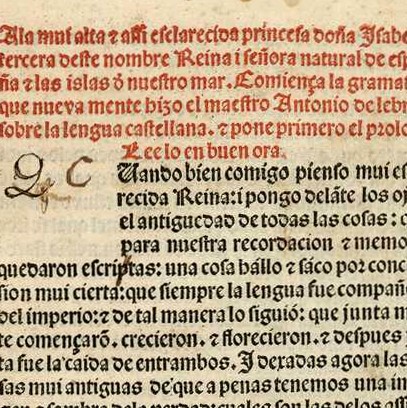 Ala mui alta ⁊ assi esclarecida princesa doña Isabe
tercera deste nombre Reina i señora natural de esp
ña ⁊ las islas ð nuestro mar. Comiença la grama
que nueva mente hizo el maestro Antonio de lebr
sobre la lengua castellana. ⁊ pone primero el prolo
Lee lo en buen ora.
Q C Uando bien comigo pienso mui es
recida Reina: i pongo delãte los oj
el antiguedad de todas las cosas: q
para nuestra recordacion ⁊ memo
quedaron escriptas: una cosa hállo ⁊ sáco por conc
sion mui cierta: que siempre la lengua fue compañe
del imperio: ⁊ de tal manera lo siguió: que junta m
te començarõ. crecieron. ⁊ florecieron. ⁊ despues
ta fue la caida de entrambos. I dexadas agora las
sas mui antiguas de que a penas tenemos una im